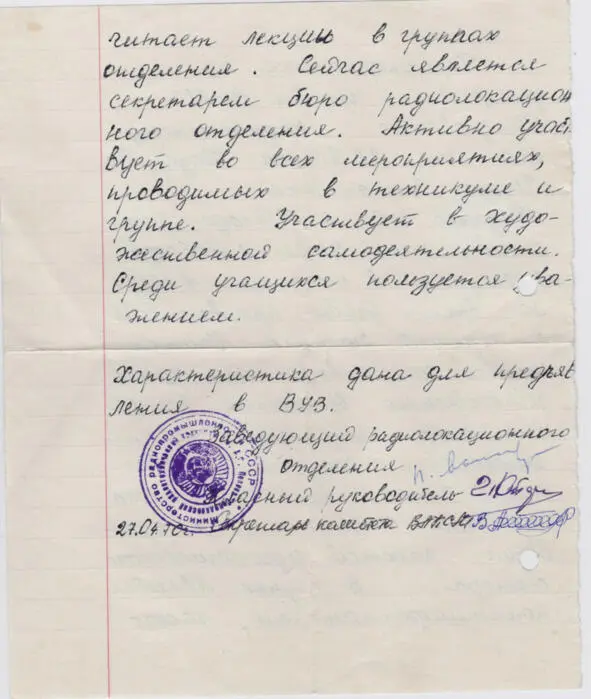 читает лекции в группах
отделения. Сейчас является
секретарем бюро радиолокацион
ного отделения. Активно участ
вует во всех мероприятиях,
проводимых в техникуме и
группе. Участвует в худо-
жественной самодеятельности.
Среди учащихся пользуется ува-
жением.
Характеристика дана для предъяв
ления в ВУЗ.
Заведующий радиолокационного
отделения
Классный руководитель
27.04.70г. Секретарь комитета ВЛКСМ
Министерство радиопромышленности СССР